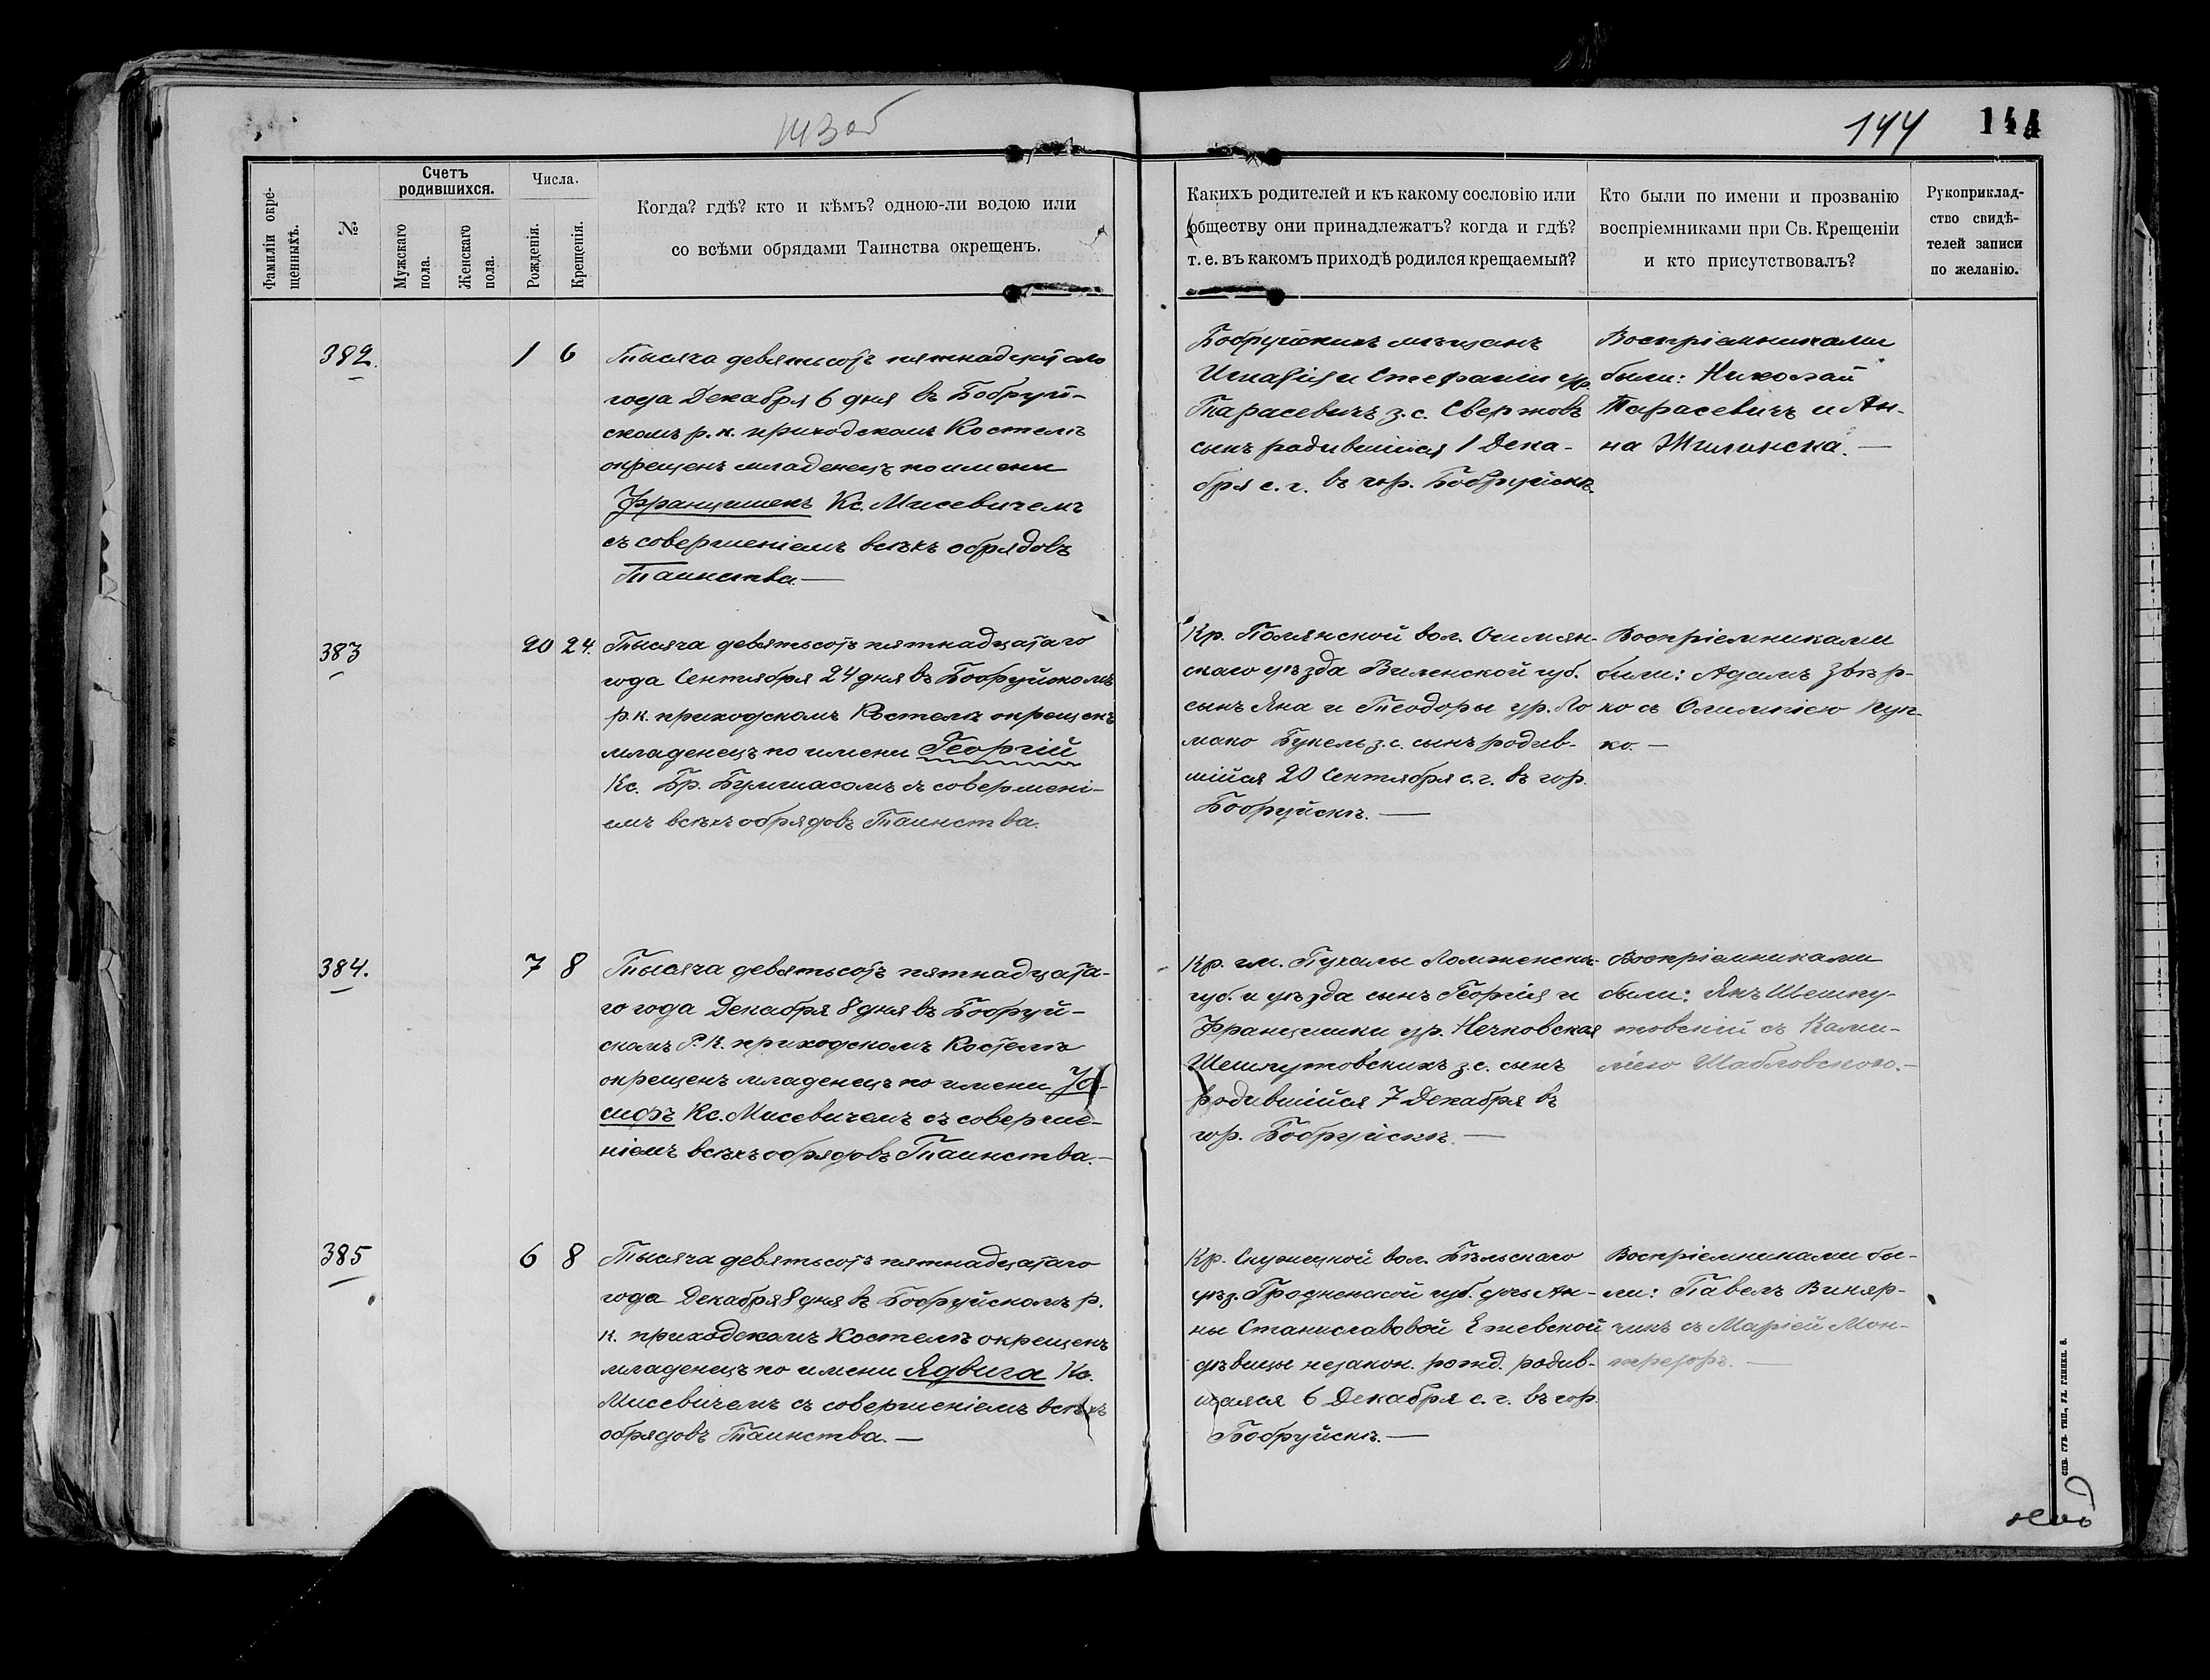 144 144
Фамиліи окре-
щенныхъ.
№
Счетъ
родившихся.
Мужскаго
пола.
Женскаго
пола.
Числа.
Рожденія.
Крещенія.
Когда? гдѣ? кто и кѣмъ? одною-ли водою или
со всѣми обрядами Таинства окрещенъ.
Какихъ родителей и къ какому сословію или
обществу они принадлежатъ? когда и гдѣ?
т. е. въ какомъ приходѣ родился крещаемый?
Кто были по имени и прозванію
воспріемниками при Св. Крещеніи
и кто присутствовалъ?
Рукоприклад-
ство свидѣ-
телей записи
по желанію.
382. 1 6
Тысяча девятьсотъ пятнадцатаго
года Декабря 6 дня въ Бобруй-
скомъ р. к. приходскомъ Костелѣ
окрещенъ младенецъ по имени
Францишекъ Кс. Мисевичемъ
съ совершеніемъ всѣхъ обрядовъ
Таинства.—
Бобруйскихъ мѣщанъ
Игнатія и Стефаніи ур.
Тарасевичъ з. с. Свержовъ
сынъ родившійся 1 Дека-
бря с. г. въ гор. Бобруйскѣ.
Воспріемниками
были: Николай
Тарасевичъ и Ан-
на Жилинска.—
383 20 24.
Тысяча девятьсотъ пятнадцатаго
года Сентября 24 дня въ Бобруйскомъ
р. к. приходскомъ Костелѣ окрещенъ
младенецъ по имени Георгій
Кс. Бр. Бумшасомъ съ совершені-
емъ всѣхъ обрядовъ Таинства.
Кр. Полянской вол. Ошмян-
скаго уѣзда Виленской губ.
сынъ Яна и Теодоры ур. Ло
мако Букель з. с. сынъ родив-
шійся 20 Сентября с. г. въ гор.
Бобруйскѣ.—
Воспріемниками
были: Адамъ Звѣр-
ко съ Олимпіею Куп-
ко.—
384. 7 8
Тысяча девятьсотъ пятнадцата-
го года Декабря 8 дня въ Бобруй-
скомъ Р. К. приходскомъ Костелѣ
окрещенъ младенецъ по имени Іо-
сифъ Кс. Мисевичемъ съ соверше-
ніемъ всѣхъ обрядовъ Таинства.—
Кр. гм. Пухалы Ломженск.
губ. и уѣзда сынъ Георгія и
Францишки ур. Нечковская
Шешкутовскихъ з. с. сынъ
родившійся 7 Декабря въ
гор. Бобруйскѣ.—
Воспріемниками
были: Янъ Шешку-
товскій съ Ками-
ліею Шабловскою.—
385 6 8
Тысяча девятьсотъ пятнадцатаго
года Декабря 8 дня въ Бобруйскомъ р.
к. приходскомъ Костелѣ окрещенъ
младенецъ по имени Ядвига Кс.
Мисевичемъ съ совершеніемъ всѣхъ
обрядовъ Таинства.—
Кр. Скужецкой вол. Бѣльскаго
уѣз. Гродненской губ. дочь Ан-
ны Станиславовой Ежевской
дѣвицы незакон. рожд. родив-
шаяся 6 Декабря с. г. въ гор.
Бобруйскѣ.—
Воспріемниками бы-
ли: Павелъ Виняр-
чикъ съ Маріей Мон-
СПБ. ГУБ. ТИП., УЛ. ГЛИНКИ, 8.